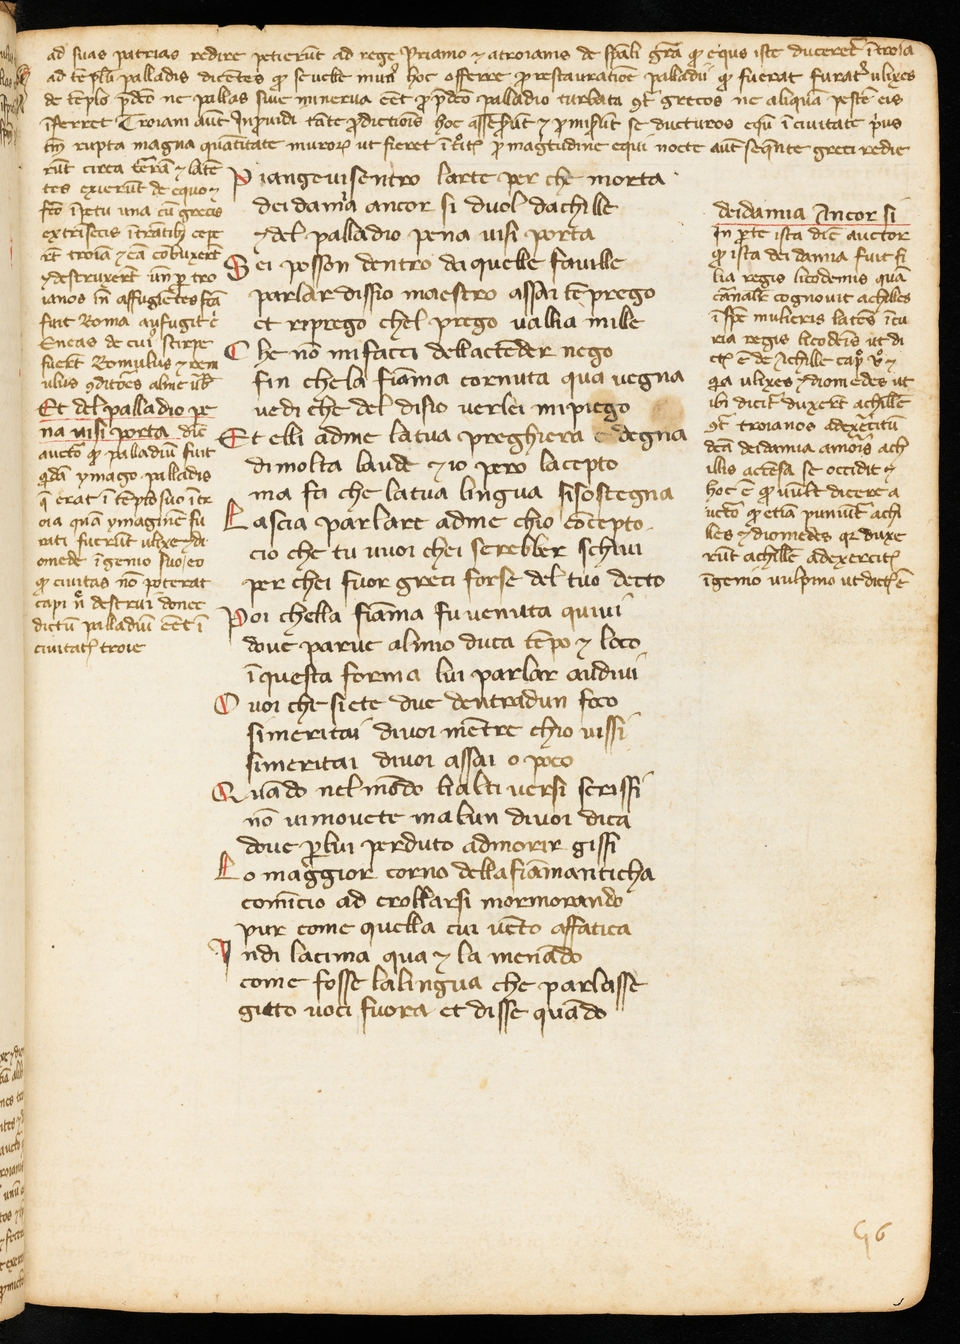 ad suas patrias redire petierūt ad rege Priamo ⁊ atroianis de sp̄ali gr̄a qđ equs iste ducereť ī troia
ad tēplū palladis dicētes qđ se uelle mun' hoc offerre p̱ restauratiōe palladii qđ fuerat furat' ulixes
de tēplo p̄dc̄o ne pallas siue minerua eēt p̱ p̄dc̄o palladio turbata ꝯt̄ grecos ne aliquā pestē eis
īferret Troiam aūt Inprouidi tāte p̱dictiōis hoc assēserūt ⁊ p̱miserūt se ducturos eqū ī ciuitate p̱us
tn̄ rupta magna quātitate muroꝝ ut fieret īťitꝰ p̱ magtudine equi nocte aūt seq̄nte greci redie
rūt circa ťrā ⁊ latē
tes exierūt de equo ⁊
fc̄o īpetu una cū grecis
extrisecis ītrātibꝫ cepe
rūt troiā ⁊ eā cōbuxerūt
⁊ destruxerūt un̄ p̱ tro
ianos in̄ affugiētes fc̄a
fuit Roma aufugit ē
Eneas de cui' stirpe
fuerūt Romulus ⁊ rem
ulus ꝯditōes alme urb̄
Et del palladio pe
na uisi porta dic̄
auctō qđ palladiū fuit
qđā ymago palladis
q̄ erat ī tēplo suo ī tr
oia quā ymaginē fu
rati fuerūt ulixe ⁊ di
omede īgenio suo eo
qđ ciuitas nō poterat
capi n̄ destrui donec
dictū palladiū eēt ī
ciuitať troie
Piangeuisentro larte per che morta
deidamia ancor si duol dachille
⁊del palladio pena uisi porta
Sei posson dentro da quelle fauille
parlar dissio maestro assai tē prego
et riprego chel prego uallia mille
Che nō mi facci dellactēder nego
fin chela fiāma cornuta qua uegna
uedi che del disio uerlei mi piego
Et elli adme latua preghiera e degna
dimolta laude ⁊ io pero lacepto
ma fa che latua lingua sisostegna
Lascia parlare adme chio cōcepto
cio che tu vuoi chei serebber schiui
per chei fuor greci forse del tuo decto
Poi chella fiāma fu uenuta quiui
doue parue almio duca tēpo ⁊ loco
ī questa forma lui parlar audiui
O voi che siete due dentradun foco
simeritai diuoi mētre chio uissi
simeritai diuoi assai o poco
Quādo nel mōdo lialti uersi scrissi
nō uimouete ma lun diuoi dica
doue p̱ lui perduto admorir gissi
Lo maggior corno dellafiāmanticha
comīcio ad crollarsi mormorando
pur come quella cui uēto affatica
Indi lacima qua ⁊ la menādo
come fosse lalingua che parlasse
gitto uoci fuora et disse quādo
deidamia Ancor si
In p̱te ista dic̄ auctor
qđ ista deidamia fuit fi
lia regis licodemis quā
cānalr̄ cognouit achilles
ī spē mulieris latēs ī cu
ria regis licodeīs ut di
ctū ē de Achille cap̱ v̊ ⁊
q̱a ulixes ⁊ diomedes ut
ibi dicit' duxerūt achillē
ꝯt̄ troianos adexercitū
dc̄ā deidamia amoīs ach
illis accēsa se occidit ⁊
hoc ē qđ uult dicere a
uctō qđ etiā puniūt' achi
lles ⁊ diomedes qꝛ duxe
rūt achillē adexerciť
īgenio uulpino ut dictū ē
56